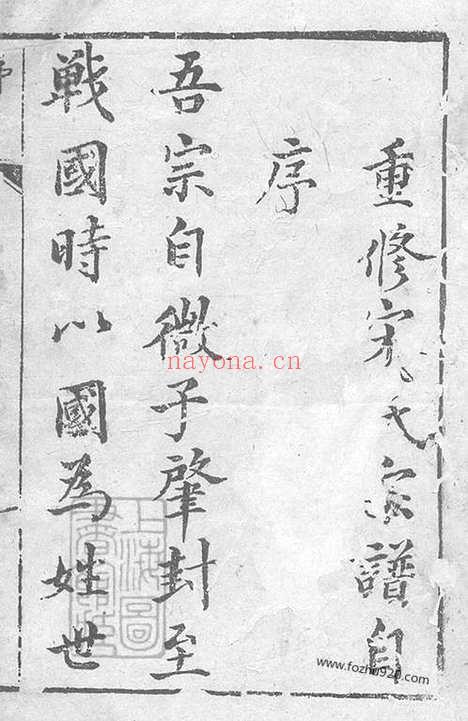 重修宋氏宗譜自
序
吾宗自微子肇封至
戰國時以國為姓世
nayona.cn
www.fozhu920.com